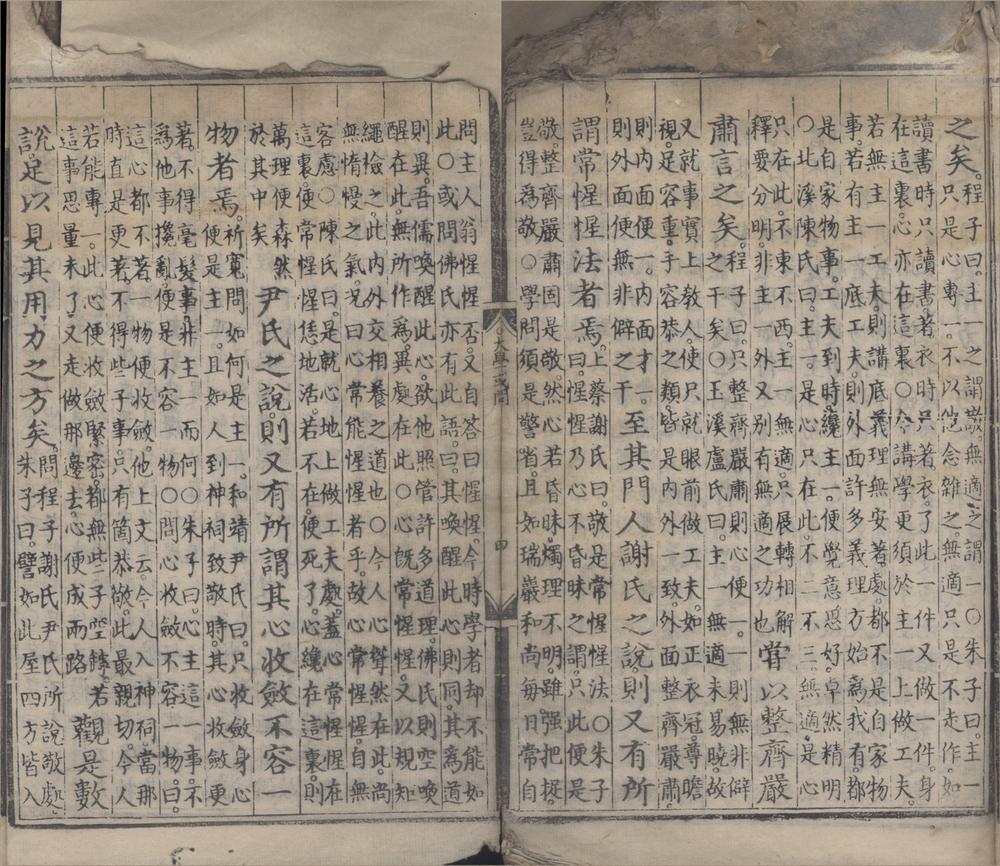 之矣。
程子曰。主一之謂敬無適之謂一〇朱子曰。主一
只是心專一。不以他念雜之。無適只是不走作。如
讀書時只讀書。著衣時只著衣。了此一件又做一件。身
在這裏。心亦在這裏〇今講學更須於主一上做工夫。
若無主一工夫。則講底義理無安著處。都不是自家物
事。若有主一底工夫。則外面許多義理方始爲我有。都
是自家物事。工夫到時。纔主一。便覺意思好。卓然精明
〇北溪陳氏曰。主一是心只在此。不二不三。無適是心
只在此。不東不西。主一無適。只展轉相解
釋要分明。非主一外又別有無適之功也
嘗以整齊嚴
肅言之矣。
程子曰。只整齊嚴肅則心便一。一則無非僻
之干矣〇玉溪盧氏曰。主一無適未易曉。故
又就事實上敎人。使只就眼前做工夫。如正衣冠。尊瞻
視。足容重。手容恭之類。皆是內外一致。外面整齊嚴肅。
則內面便一。內面才一。
則外面便無非僻之干。
至其門人謝氏之說。則又有所
謂常惺惺法者焉。
上蔡謝氏曰。敬是常惺惺法〇朱子
曰。惺惺乃心不昏昧之謂。只此便是
敬。整齊嚴肅固是敬。然心若昏昧。燭理不明。雖强把捉
豈得爲敬〇學問須是警省。且如瑞巖和尚每日常自
大學或問
四
問主人翁惺惺否。又自答曰惺惺。今時學者却不能如
此〇或問佛氏亦有此語。曰其喚醒此心則同。其爲道
則異。吾儒喚醒此心。欲他照管許多道理。佛氏則空喚
醒在此。無所作爲。異處在此〇心旣常惺惺。又以規矩
繩檢之。此內外交相養之道也〇今人心聳然在此。尚
無惰慢之氣。况曰心常能惺惺者乎。故心常惺惺。自無
客慮〇陳氏曰。是就心地上做工夫處。蓋心常惺惺在
這裏。便常惺惺恁地活。若不在。便死了。心纔在這裏。則
萬理便森然
於其中矣
尹氏之說。則又有所謂其心收斂不容一
物者焉。
祈寬問如何是主一。和靖尹氏曰。只收斂身心
便是主一。且如人到神祠致敬時。其心收斂更
著不得毫髮事。非主一而何〇朱子曰。心主這一事。不
爲他事攙亂。便是不容一物〇問心收斂不容一物。曰
這心都不著一物便收斂。他上文云。今人入神祠。當那
時直是更著不得些子事。只有箇恭敬。此最親切。今人
若能專一。此心便收斂緊密。都無些子空罅。若
這事思量未了。又走做那邊去。心便成兩路
觀是數
說。足以見其用力之方矣。
問程子謝氏尹氏所說敬處。
朱子曰。譬如此屋四方皆入